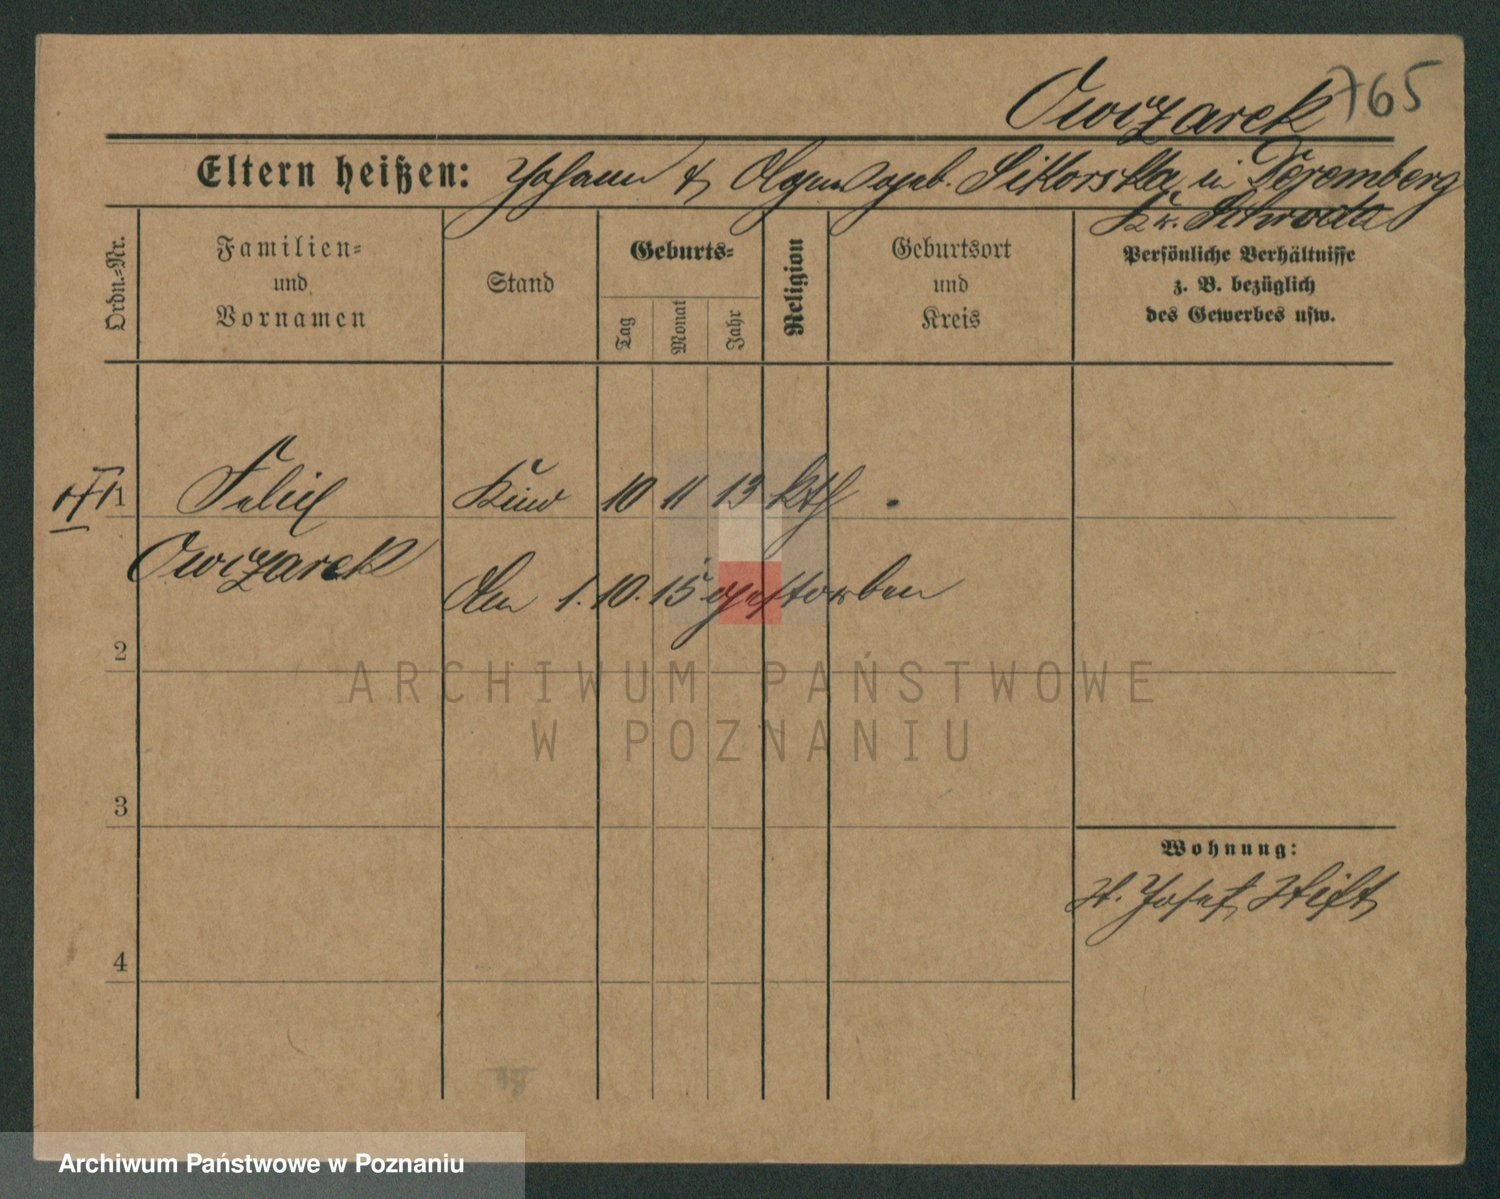 Owczarek 765
Eltern heißen: Johann & Olga geb. Sikorska in
Kr. Schroda
Ordn.-Nr.
Familien-
und
Vornamen
Stand
Geburts-
Tag
Monat
Jahr
Religion
Geburtsort
und
Kreis
Persönliche Verhältnisse
z. B. bezüglich
des Gewerbes usw.
1 Felix Kind 10 11 13 kth
Owczarek
den 1. 10. 15 gestorben
2
ARCHIWUM PAŃSTWOWE
W POZNANIU
3
Wohnung:
St. Josef Stift
4
Archiwum Państwowe w Poznaniu